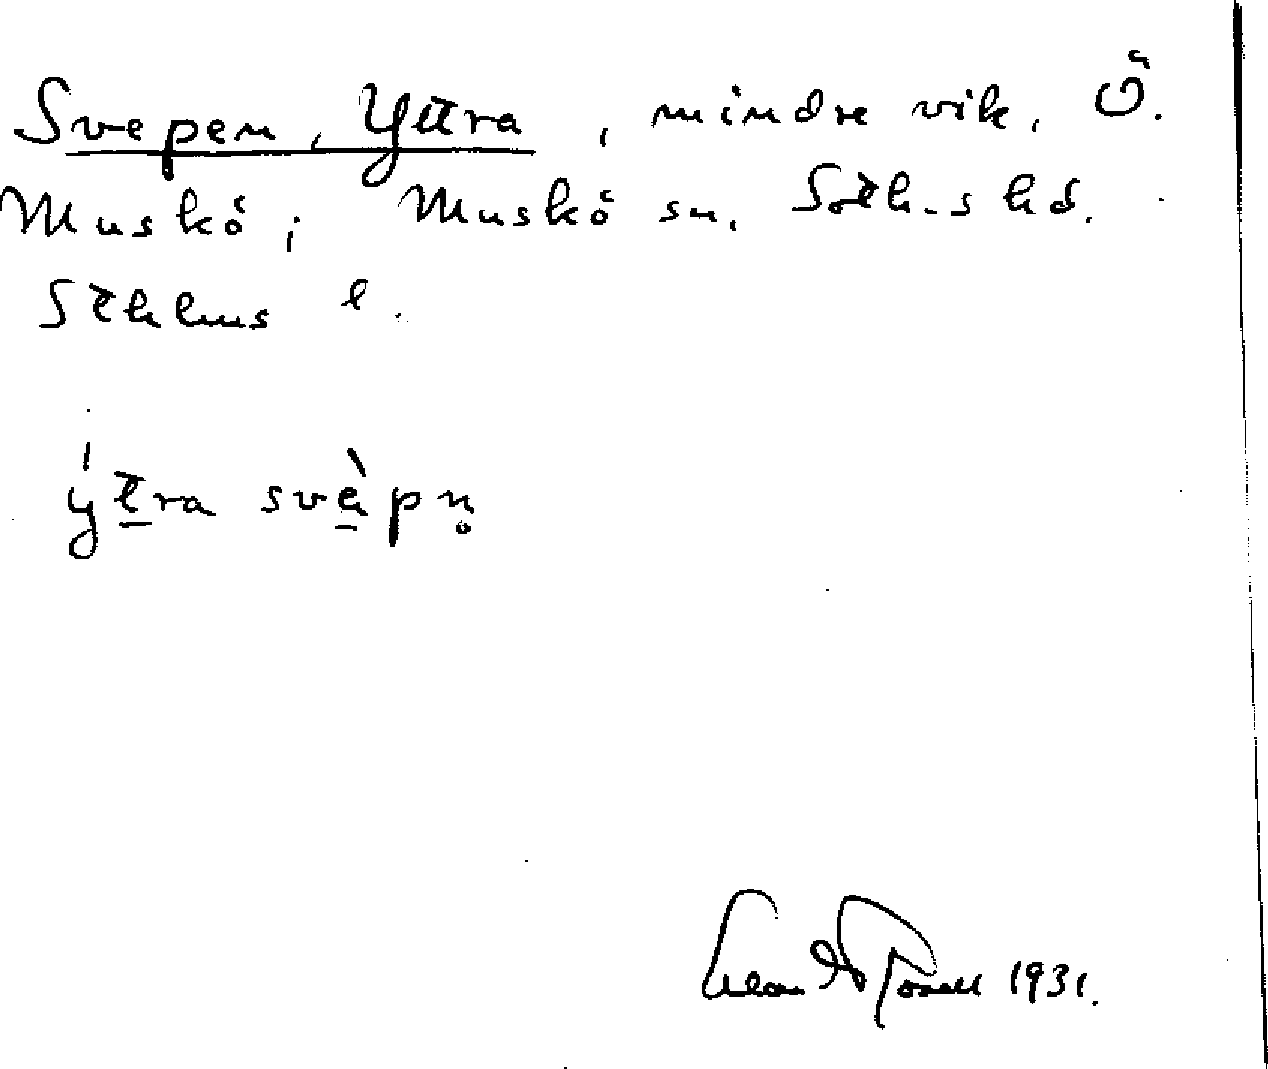 Svepen, Yttra, mindre vik, Ö.
Muskö; Muskö sn, Soth-s hd.
Sthlms l.
ýtra svèpn̥
1931.